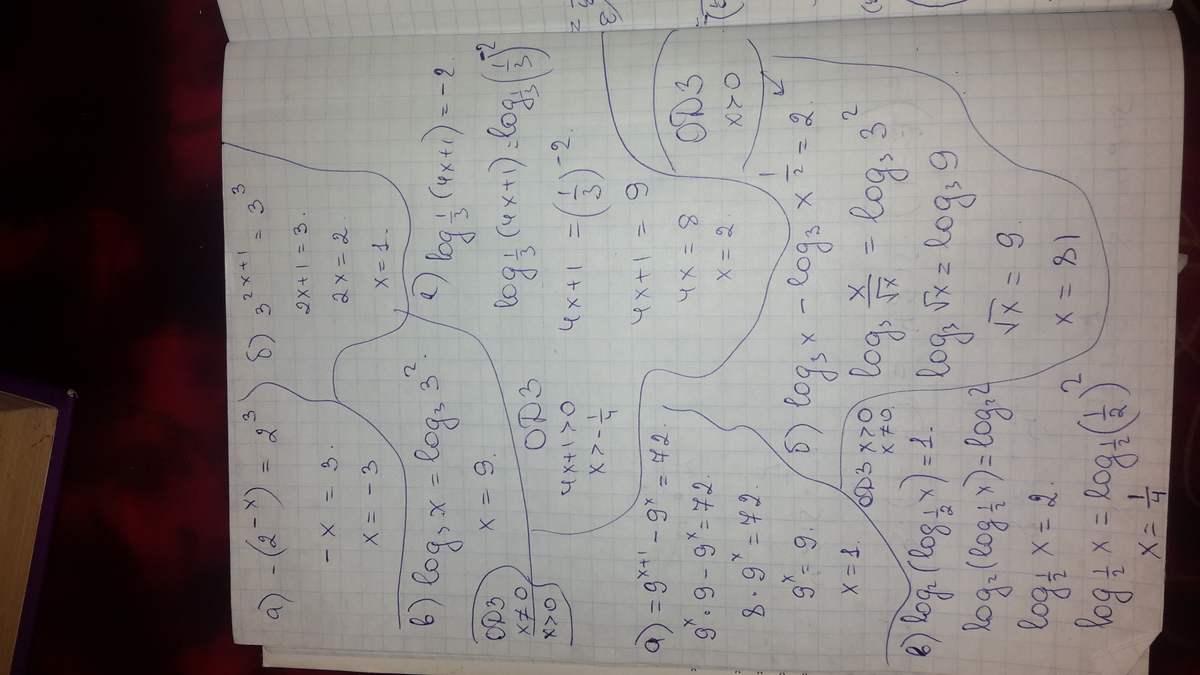 а) -(2^-x) = 2^3)
-x = 3.
x = -3
б) 3^2x+1 = 3^3
2x+1 = 3.
2x = 2
x = 1.
в) log₃ x = log₃ 3^2.
x = 9.
ОДЗ
x≠0
x>0
г) log 1/3 (4x+1) = -2.
log 1/3 (4x+1) = log 1/3 (1/3)^-2
4x+1 = (1/3)^-2.
4x+1 = 9
4x = 8
x = 2.
ОДЗ
4x+1>0
x>-1/4
а) = 9^x+1 - 9^x = 72.
9^x · 9 - 9^x = 72
8 · 9^x = 72.
9^x = 9.
x = 1.
б) log₃ x - log₃ x^1/2 = 2.
log₃ x/√x = log₃ 3^2
log₃ √x = log₃ 9
√x = 9.
x = 81
ОДЗ
x>0
в) log₂ (log 1/2 x) = 1.
log₂ (log 1/2 x) = log₂ 2
log 1/2 x = 2.
log 1/2 x = log 1/2 (1/2)^2
x = 1/4
ОДЗ x>0
x≠0.